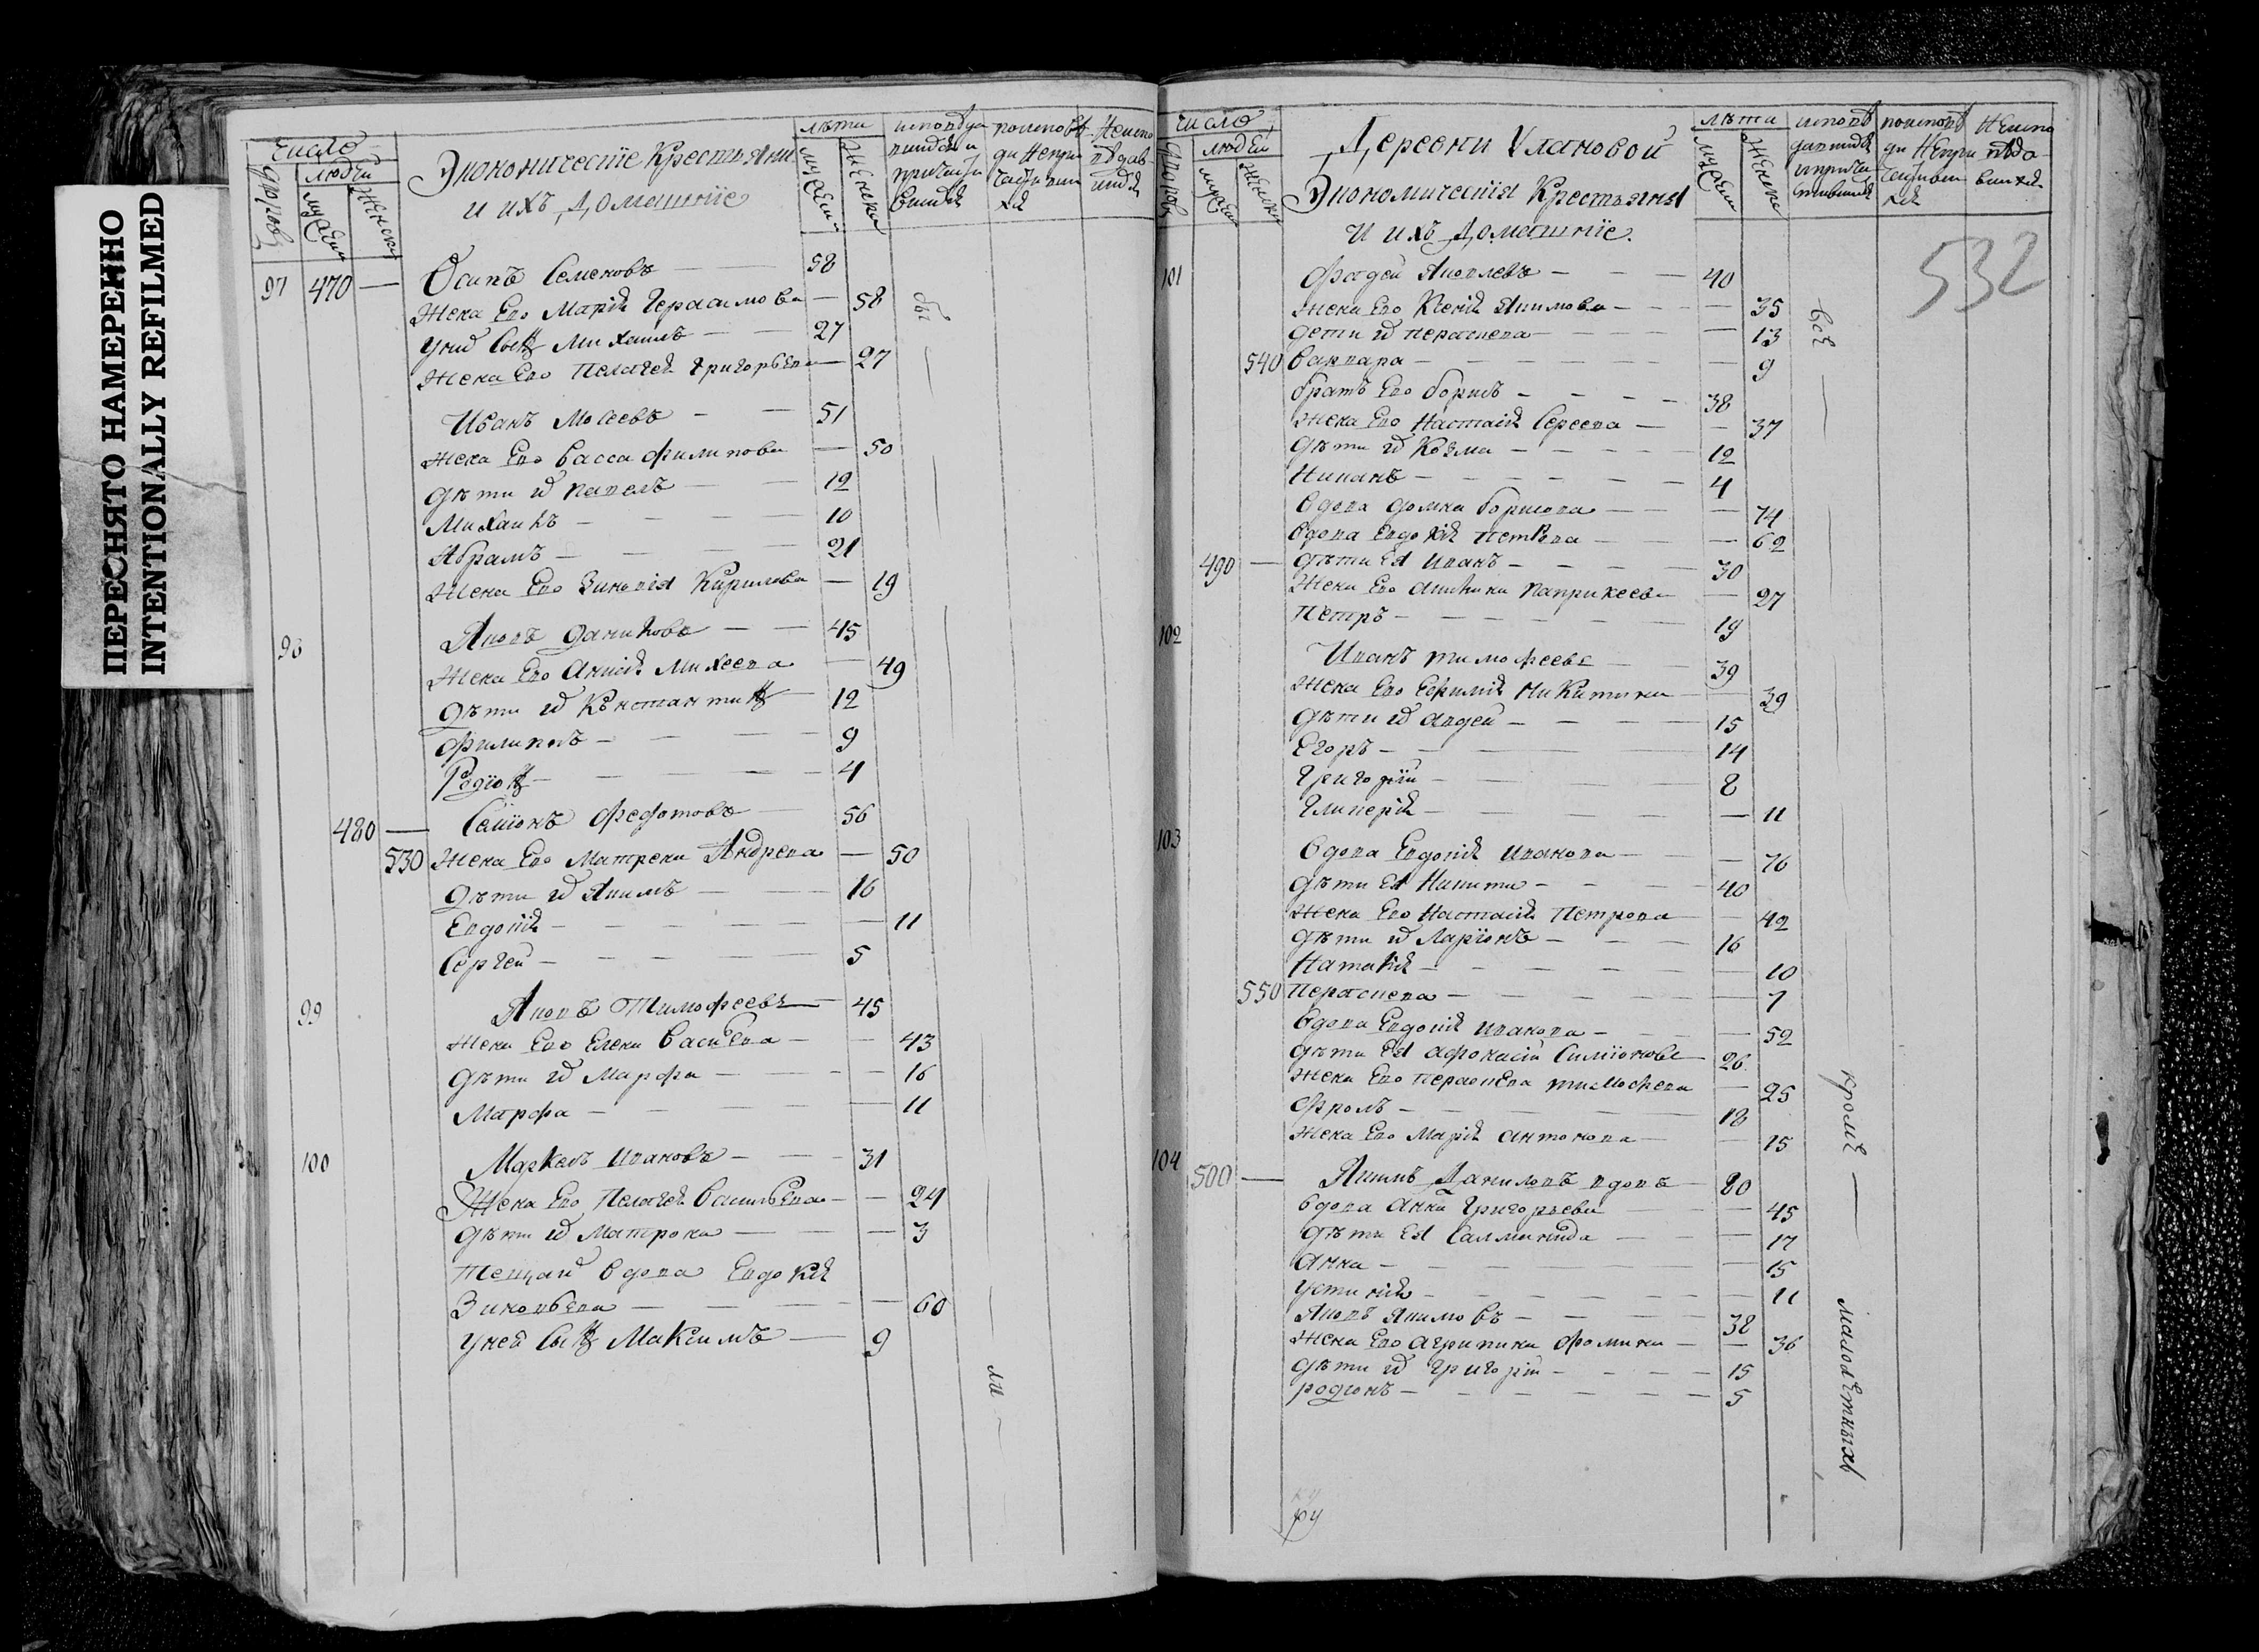 ПЕРЕСНЯТО НАМЕРЕННО
INTENTIONALLY REFILMED
Число
людей
дворовъ
мужеск
женски
Экономическіе Крестьяни
и ихъ Домашніе
лѣта
мужеск
женски
97 470 — Осипъ Семеновъ — 58
Жена Ево Марія Герасимова — 58
унид Сынъ Михаилъ — 27
Жена Ево Пелагея Григорьева — 27
Иванъ Мосеевъ — 51
Жена Ево Васса Филипова — 50
дѣти ид Павелъ — 12
Михаила — 10
Абрамъ — 21
Жена Ево Зиновія Кирилова — 19
98 Яковъ Даниловъ — 45
Жена Ево Анисія Михеева — 49
дѣти ид Константинъ — 12
Филипъ — 9
Родіонъ — 4
480 — Семіонъ Федотовъ — 56
530 Жена Ево Матрена Андрева — 50
дѣти ид Якимъ — 16
Евдокія — 11
Сергей — 5
99 Яковъ Тимофеевъ — 45
Жена Ево Елена Василева — 43
дѣти ид Марфа — 16
Марфа — 11
100 Маркелъ Ивановъ — 31
Жена Ево Пелагея Васильева — 24
дѣти ид Матрона — 3
Тещаид вдова Евдокія
Зиновьева — 60
унея Сынъ Максимъ — 9
число
людей
дворовъ
мужеск
женски
Деревни Улановой
Экономическія Крестьяны
И ихъ Домашніе.
лѣта
мужеск
женски
532
101 Фадей Яковлевъ — 40
жена Ево Ксенія Якимова — 35
дети ид Параскева — 13
540 Варвара — 9
братъ Ево Борисъ — 38
Жена Ево Настасія Сергеева — 37
дѣти ид Козма — 12
Никанъ — 4
вдова Домна Борисова — 74
вдова Евдокія Петрова — 62
490 — дѣти Ея Иванъ — 30
Жена Ево Панкрикеева — 27
Петръ — 19
102 Иванъ Тимофеевъ — 39
Жена Ево Ефимія Никитина — 39
дѣти ид Авдей — 15
Егоръ — 14
Григорій — 8
Гликерія — 11
103 Вдова Евдокія Иванова — 76
дѣти Ея Никита — 40
Жена Ево Настасія Петрова — 42
дѣти ид Ларіонъ — 16
Наталія — 10
550 Параскева — 7
Вдова Евдокія Иванова — 52
дѣти Ея Афонасій Симіоновъ — 26
Жена Ево Параскева Тимофеева — 25
Фролъ — 18
Жена Ево Марія Антонова — 15
104 500 — Якимъ Даниловъ вдовъ — 80
вдова Анна Григорьева — 45
дѣти Ея Саламанида — 17
Анна — 15
Устинія — 11
Яковъ Якимовъ — 38
Жена Ево Агрипина Фомина — 36
дѣти ид Григорій — 15
родіонъ — 5
всѣ
кромѣ
малолѣтныхъ
ру